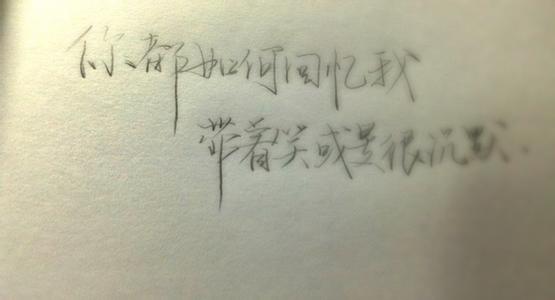 你都如何回忆我
带着笑或是很沉默.